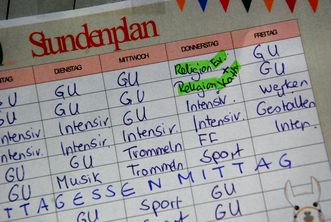 Stundenplan
DIENSTAG MITTWOCH DONNERSTAG FREITAG
GU GU Religion Ev. GU
GU GU Religion Kath. GU
Intensiv. Intensiv. Intensiv. Werken
Intensiv. Intensiv. Intensiv. Gestalten
GU Trommeln FF Inten.
GU Musik Trommeln Sport
TTAGESSEN MITTAG
GU Sport GU GU
GU GU